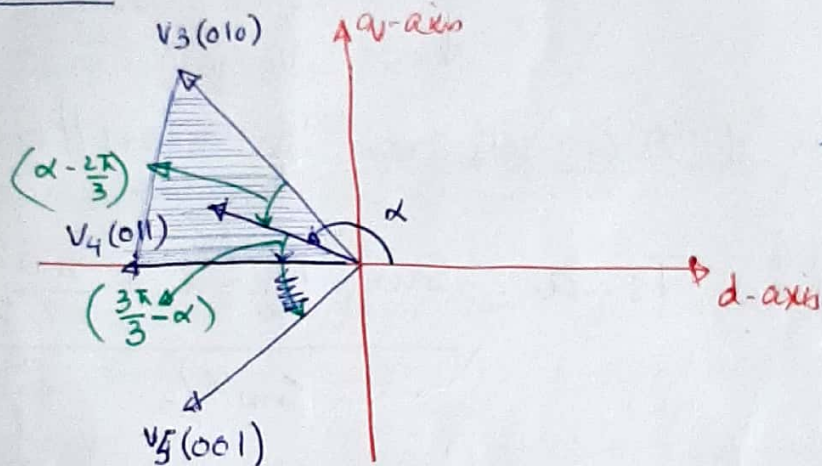 V3(010)
q-axis
(α - 2π/3)
α
V4(011)
d-axis
(3π/3 - α)
V5(001)